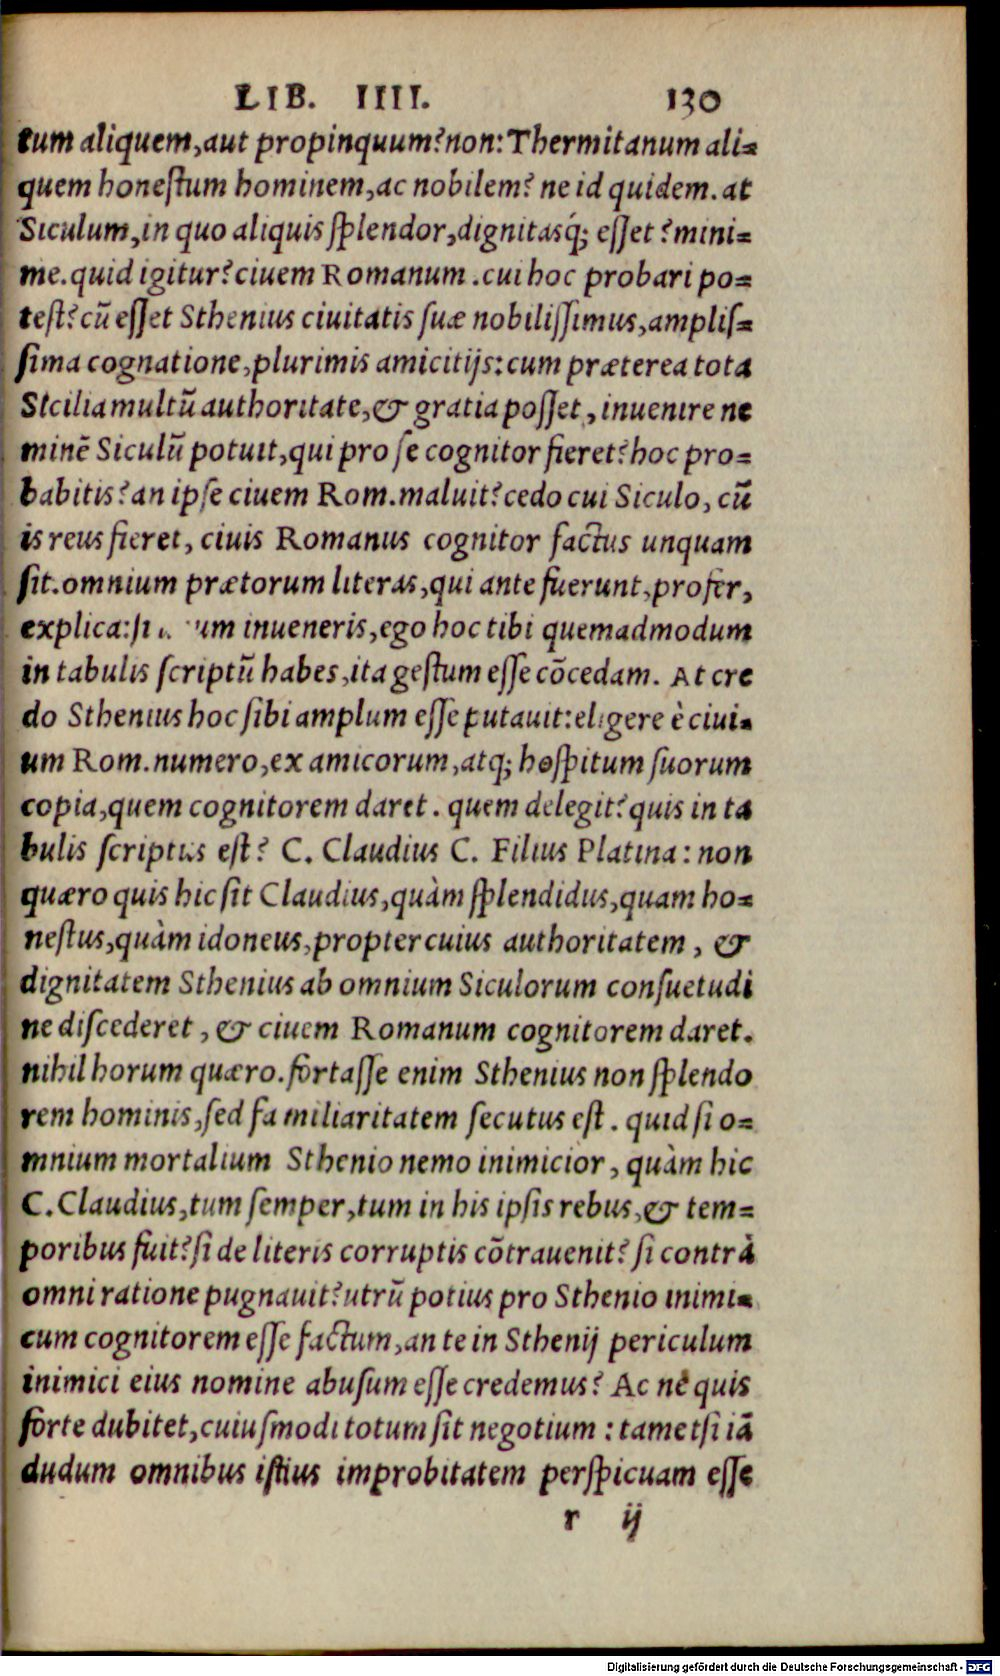 LIB. IIII. 130
tum aliquem,aut propinquum?non:Thermitanum ali=
quem honeſtum hominem,ac nobilem? ne id quidem.at
Siculum,in quo aliquis ſplendor,dignitasq́; eſſet?mini=
me.quid igitur?ciuem Romanum.cui hoc probari po=
teſt?cũ eſſet Sthenius ciuitatis ſuæ nobiliſſimus,ampliſ=
ſima cognatione,plurimis amicitijs:cum præterea tota
Siciliamultũ authoritate,& gratia poſſet, inuenire ne
minẽ Siculũ potuit,qui pro ſe cognitor fieret?hoc pro=
babitis?an ipſe ciuem Rom.maluit?cedo cui Siculo, cũ
is reus fieret, ciuis Romanus cognitor factus unquam
ſit.omnium prætorum literas,qui ante fuerunt,profer,
explica:ſi inueneris,ego hoc tibi quemadmodum
in tabulis ſcriptũ habes,ita geſtum eſſe cõcedam. At cre
do Sthenius hoc ſibi amplum eſſe putauit:eligere è ciui=
um Rom.numero,ex amicorum,atq; hoſpitum ſuorum
copia,quem cognitorem daret. quem delegit?quis in ta
bulis ſcriptus eſt? C. Claudius C. Filius Platina: non
quæro quis hic ſit Claudius,quàm ſplendidus,quam ho=
neſtus,quàm idoneus,propter cuius authoritatem, &
dignitatem Sthenius ab omnium Siculorum conſuetudi
ne diſcederet, & ciuem Romanum cognitorem daret.
nihil horum quæro.fortaſſe enim Sthenius non ſplendo
rem hominis,ſed familiaritatem ſecutus eſt. quid ſi o=
mnium mortalium Sthenio nemo inimicior, quàm hic
C.Claudius,tum ſemper,tum in his ipſis rebus,& tem=
poribus fuit?ſi de literis corruptis cõtrauenit? ſi contrà
omni ratione pugnauit?utrũ potius pro Sthenio inimi=
cum cognitorem eſſe factum,an te in Sthenij periculum
inimici eius nomine abuſum eſſe credemus? Ac nè quis
forte dubitet,cuiuſmodi totum ſit negotium : tametſi iã
dudum omnibus iſtius improbitatem perſpicuam eſſe
r ij
Digitalisierung gefördert durch die Deutsche Forschungsgemeinschaft - DFG